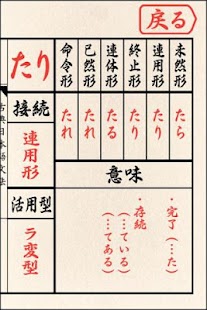 戻る
未然形
連用形
終止形
連体形
已然形
命令形
たら
たり
たり
たる
たれ
たれ
意味
・完了(…た)
・存続
(…ている)
(…てある)
たり
接続
連用形
活用型
ラ変型
古典日本語文法